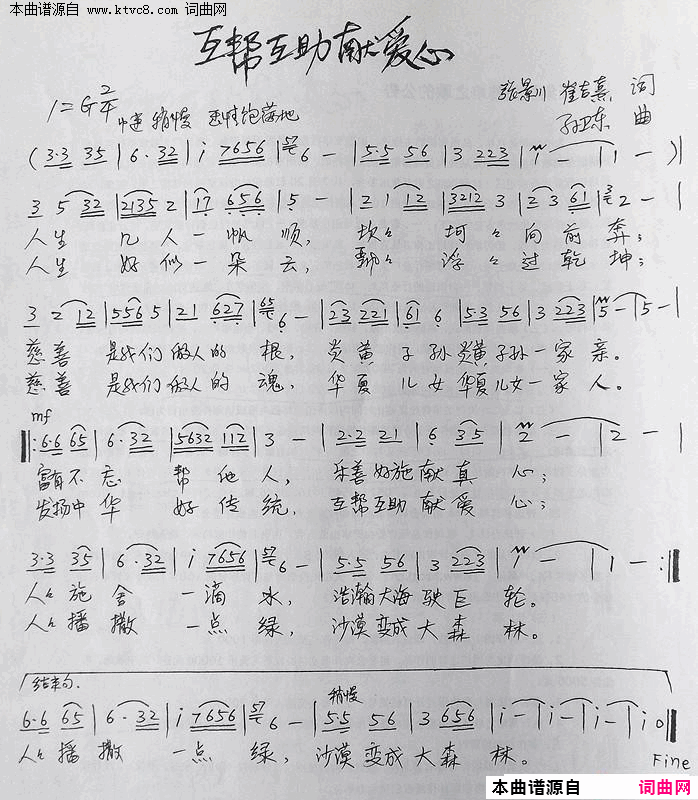 本曲谱源自 www.ktvc8.com 词曲网
互帮互助献爱心
1=G 2/4 中速 稍慢
张景川 崔吉熹 词
孙卫东 曲
(3·3 35 | 6·32 | i 7656 | 57 6 - | 5·5 56 | 3 223 | 1 - | 1 - )|
3 5 32 | 2135 2 | 17 656 | 5 - | 2 1 12 | 3212 3 | 2 3 61 | 3 2 - |
人生 几人一帆顺, 坎々坷々向前奔;
人生 好似一朵云, 飘々浮々过乾坤;
3 2 12 | 5565 5 | 21 627 | 65 6 - | 23 221 | 61 6 | 5·3 56 | 3 223 | 5 - | 5 - |
慈善 是我们做人的根, 炎黄子孙炎黄子孙一家亲。
慈善 是我们做人的魂, 华夏儿女华夏儿女一家人。
mf
|: 6·6 65 | 6·32 | 5632 112 | 3 - | 2·2 21 | 6 35 | 2 - | 2 - |
富有不忘 帮他人, 乐善好施献真心;
发扬中华 好传统, 互帮互助献爱心;
3·3 35 | 6·32 | i 7656 | 57 6 - | 5·5 56 | 3 223 | 1 - | 1 - :|
人々施舍 一滴水, 浩瀚大海驶巨轮。
人々播撒 一点绿, 沙漠变成大森林。
结束句. 稍慢
6·6 65 | 6·32 | i 7656 | 57 6 - | 5·5 56 | 3 656 | i - | i - | i - | i 0 |
人々播撒 一点绿, 沙漠变成大森林。 Fine
本曲谱源自 词曲网